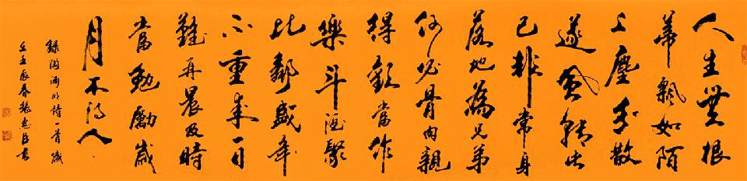 人生無根
蒂飄如陌
上塵分散
逐風轉此
已非常身
落地為兄弟
何必骨肉親
得歡當作
樂斗酒聚
比鄰盛年
不重來一日
難再晨及時
當勉勵歲
月不待人
錄陶淵明詩一首歲
春書